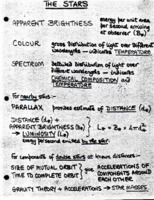 THE STARS
APPARENT BRIGHTNESS energy per unit area per second arriving at observer (B⊕)
COLOUR gross distribution of light over different wavelengths – indicates TEMPERATURE
SPECTRUM detailed distribution of light over different wavelengths – indicates CHEMICAL COMPOSITION and TEMPERATURE
For nearby stars:
PARALLAX provides estimate of DISTANCE
DISTANCE +
APPARENT BRIGHTNESS
→ LUMINOSITY
energy per second emitted by the star.
For components of double stars at known distances –
SIZE OF MUTUAL ORBIT
TIME TO COMPLETE ORBIT
give ACCELERATIONS OF COMPONENTS AROUND EACH OTHER
GRAVITY THEORY + ACCELERATIONS → STAR MASSES